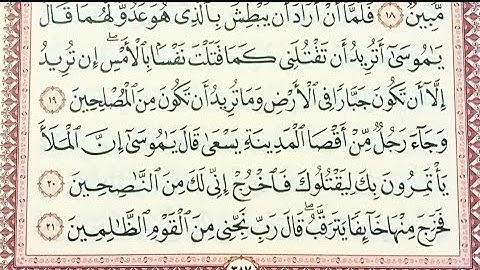 مُّبِينٌ ١٨ فَلَمَّآ أَنْ أَرَادَ أَن يَبْطِشَ بِٱلَّذِى هُوَ عَدُوٌّ لَّهُمَا قَالَ
يَٰمُوسَىٰٓ أَتُرِيدُ أَن تَقْتُلَنِى كَمَا قَتَلْتَ نَفْسًۢا بِٱلْأَمْسِ ۖ إِن تُرِيدُ
إِلَّآ أَن تَكُونَ جَبَّارًا فِى ٱلْأَرْضِ وَمَا تُرِيدُ أَن تَكُونَ مِنَ ٱلْمُصْلِحِينَ ١٩
وَجَآءَ رَجُلٌ مِّنْ أَقْصَا ٱلْمَدِينَةِ يَسْعَىٰ قَالَ يَٰمُوسَىٰٓ إِنَّ ٱلْمَلَأَ
يَأْتَمِرُونَ بِكَ لِيَقْتُلُوكَ فَٱخْرُجْ إِنِّى لَكَ مِنَ ٱلنَّٰصِحِينَ ٢٠
فَخَرَجَ مِنْهَا خَآئِفًا يَتَرَقَّبُ ۖ قَالَ رَبِّ نَجِّنِى مِنَ ٱلْقَوْمِ ٱلظَّٰلِمِينَ ٢١
٣٨٧